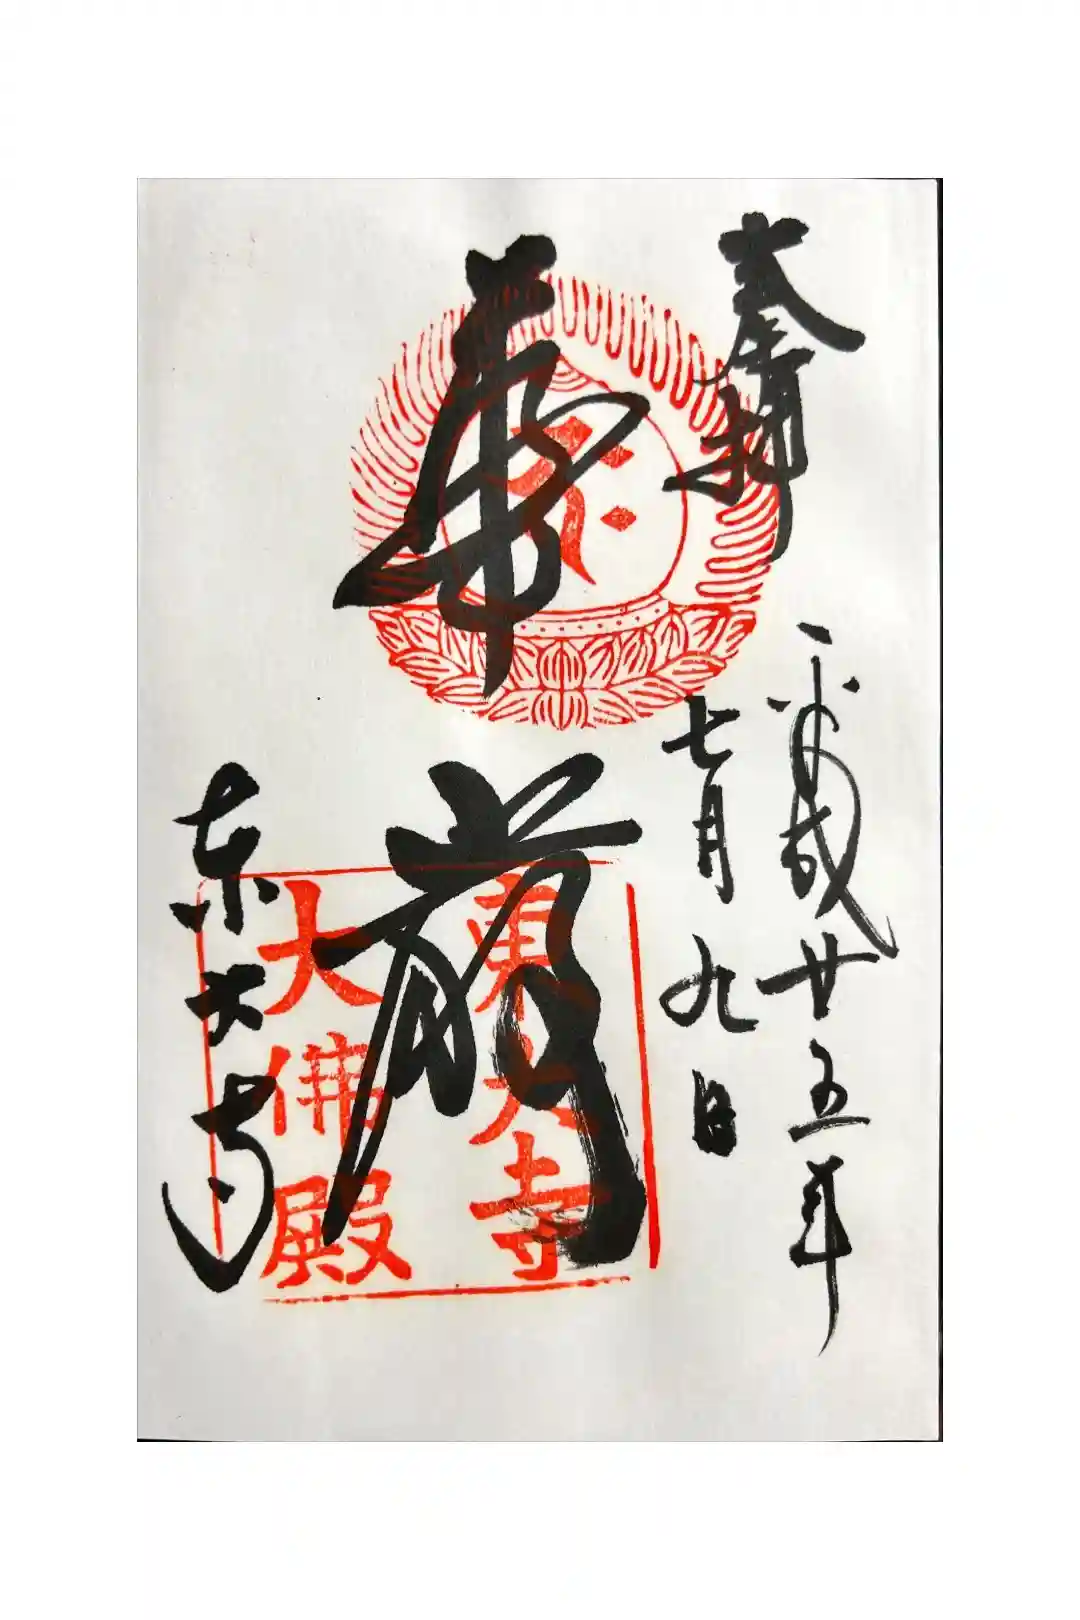 奉拝
平成廿五年
七月九日
華嚴
東大寺
東大寺
大佛殿